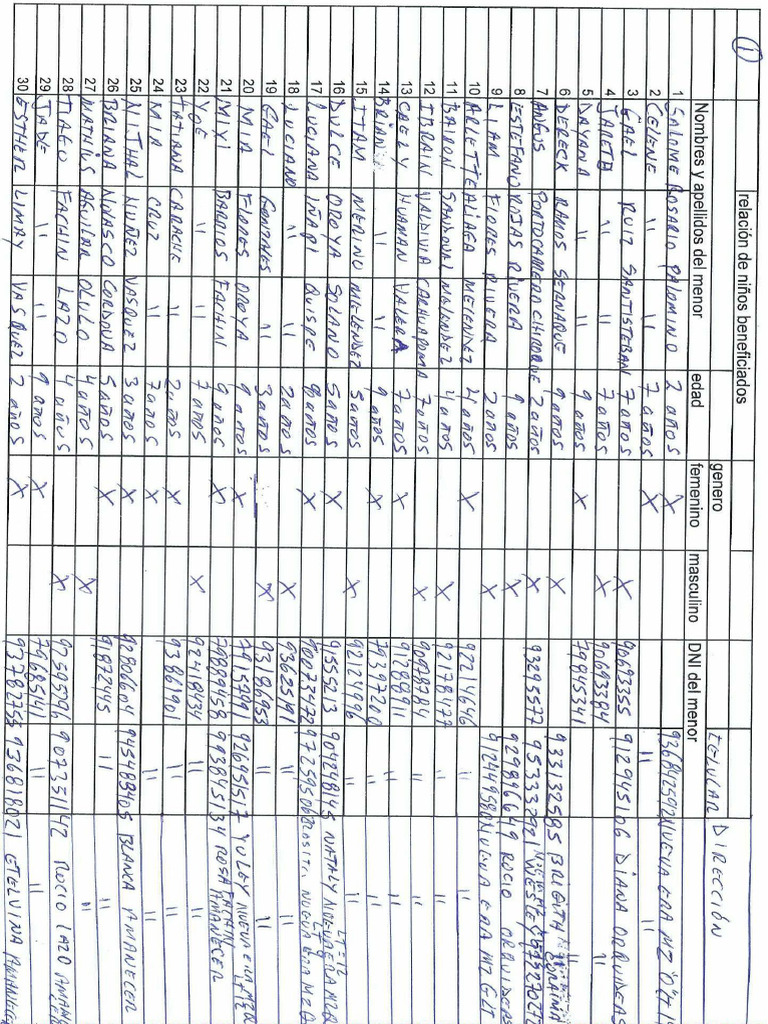 1
relación de niños beneficiados
genero
CELULAR DIRECCIÓN
Nombres y apellidos del menor edad femenino masculino DNI del menor
1 SALOME ROSARIO PALOMINO 2 años X 936843592 NUEVA ERA MZ "O"
2 CELENE " " 7 años X " "
3 GAEL RUIZ SANTISTEBAN 7 años X 90693355 912945106 DIANA ORQUIDEAS
4 JARETH " " 7 años X 90693384 " "
5 DAYANA " " 9 años X 79845341 "
6 DERECK RAMOS SERNAQUE 9 años X 933132585 BRIGITH
7 ANGUS PORTOCARRERO CHIROQUE 2 años X 93295577 953333792
8 ESTEFANO ROJAS RIVERA 9 años X 929896649 ROCIO ORQUIDEAS
9 LIAM FLORES RIVERA 2 años X 912449580 NUEVA ERA MZ
10 ARLETTE ALIAGA MELENDEZ 4 años X 92214646 "
11 BAIRON SANDOVAL MELENDEZ 4 años X 92178477 " "
12 IBRAIN VALDIVIA CARHUAPOMA 7 años X 90978784 " "
13 CAELY HUAMAN VALERA 7 años X 91288911 " "
14 BRIAN " " 9 años X 79397200 " "
15 ITAM NERINO MELENDEZ 5 años X 92124996 " "
16 DULCE OROYA SOLANO 5 años X 91555213 904298145 NATALY NUEVA ERA MZ Q LT=12
17 LUCIANA IÑAPI QUISPE 8 años X 90073472 972595062 ROSITA NUEVA ERA MZ Q
18 LUCIANO " " 2 años X 93625191 " "
19 GAEL GONZALES " 3 años X 93186953 " "
20 MIA FLORES OROYA 9 años X 79157991 926951517 YULEY NUEVA ERA MZ
21 MIXI BARRIOS FACHIN 9 años X 79889458 993845134 ROSA FACHIN AMANECER
22 YOE " " 7 años X 92418934 " "
23 TATIANA CARACHE " 2 años X 93861901 " "
24 MIA CRUZ " 7 años X " "
25 NIJHAL NUÑEZ VASQUEZ 3 años X 92806604 945488405 BLANCA AMANECER
26 BRIANA NOVASCO CORDOVA 5 años X 91872415 " "
27 MATHIUS AGUILAR OLULO 4 años X "
28 TIAGO FACHIN LAZO 4 años X 92595796 907351142 ROCIO LAZO
29 JADE " " 9 años X 79685141 " "
30 ESTHER LIMAY VASQUEZ 2 años X 93782755 936818021 ETELVINA